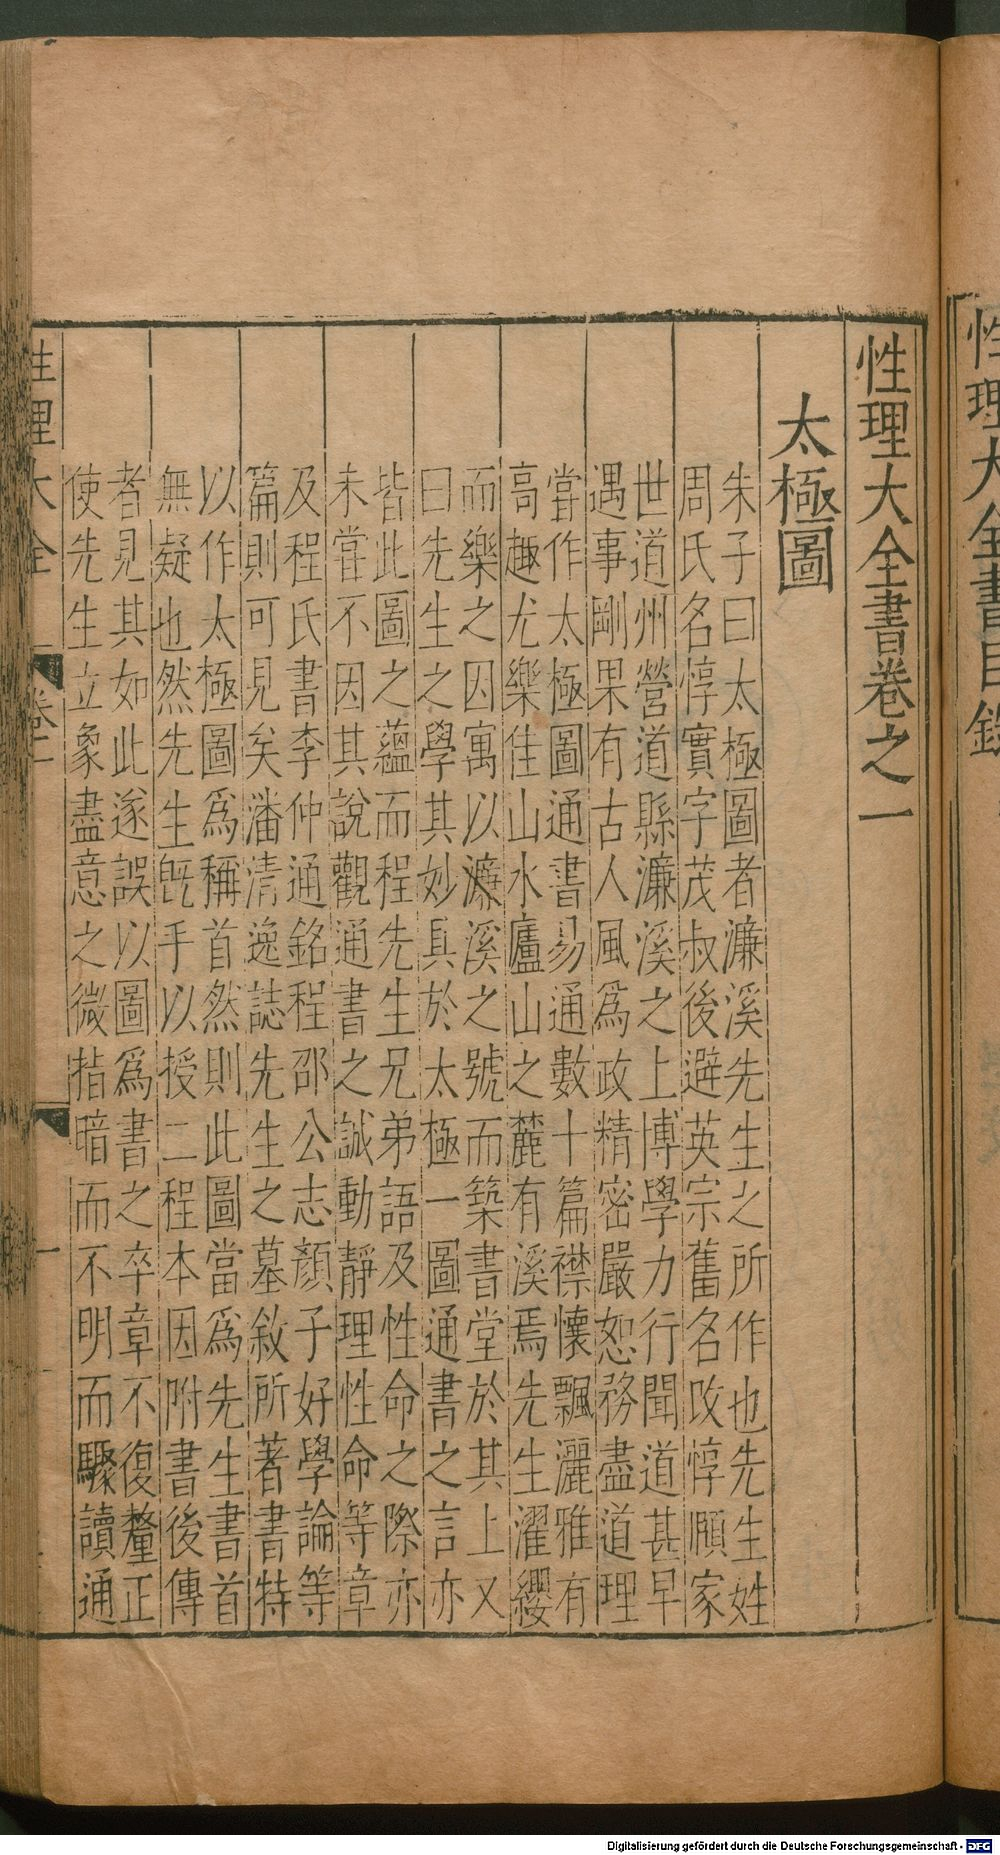 性理大全書卷之一
太極圖
朱子曰太極圖者濂溪先生之所作也先生姓
周氏名惇實字茂叔後避英宗舊名改惇頤家
世道州營道縣濂溪之上博學力行聞道甚早
遇事剛果有古人風爲政精密嚴恕務盡道理
嘗作太極圖通書易通數十篇襟懷飄灑雅有
高趣尤樂佳山水廬山之麓有溪焉先生濯纓
而樂之因寓以濂溪之號而築書堂於其上又
曰先生之學其妙具於太極一圖通書之言亦
皆此圖之蘊而程先生兄弟語及性命之際亦
未嘗不因其說觀通書之誠動靜理性命等章
及程氏書李仲通銘程邵公志顏子好學論等
篇則可見矣潘清逸誌先生之墓敘所著書特
以作太極圖爲稱首然則此圖當爲先生書首
無疑也然先生旣手以授二程本因附書後傳
者見其如此遂誤以圖爲書之卒章不復釐正
使先生立象盡意之微指暗而不明而驟讀通
性理大全 卷一 一
性理大全書目錄
Digitalisierung gefördert durch die Deutsche Forschungsgemeinschaft - DFG